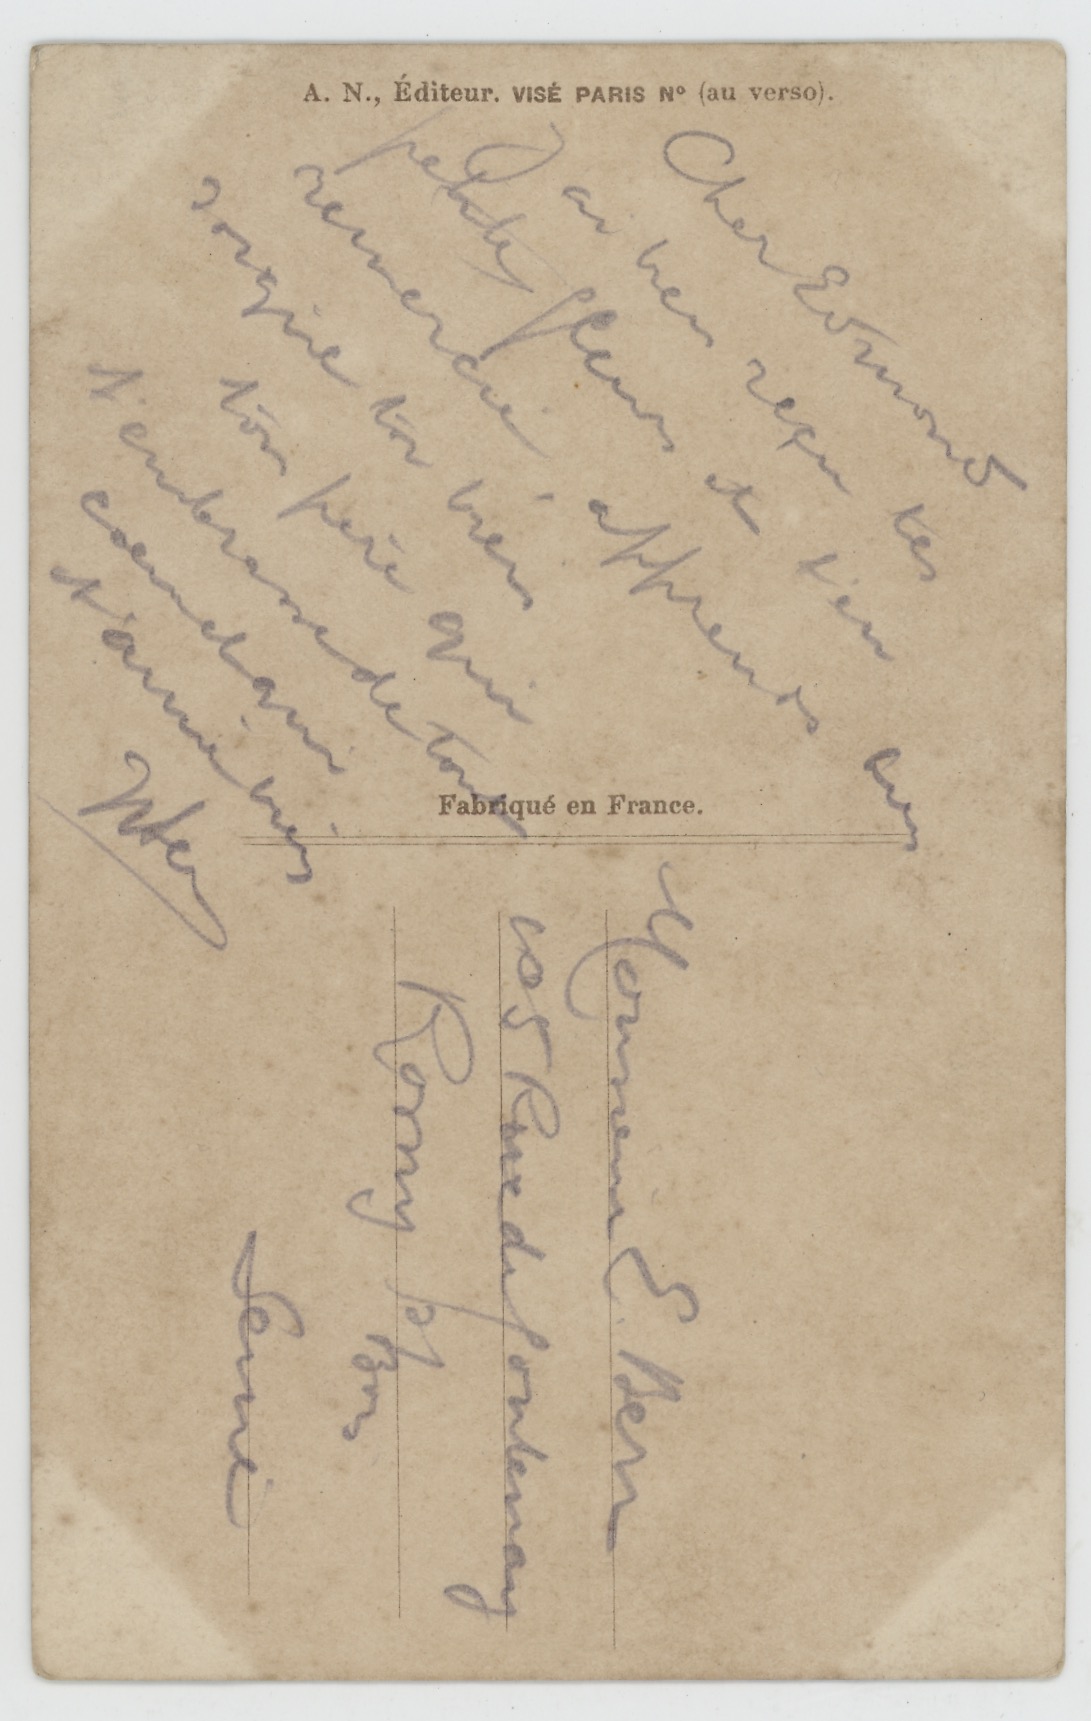 A. N., Éditeur. VISÉ PARIS Nº (au verso).
Cher Edmond
J'ai bien reçu tes
petites fleurs et t'en
remercie apprends bien
soigne toi bien
ton père qui
t'embrasse de tout
coeur et qui
t'aime bien
Fabriqué en France.
Monsieur E. Bern
105 Rue de fontenay
Rosny s/
Bois
Seine